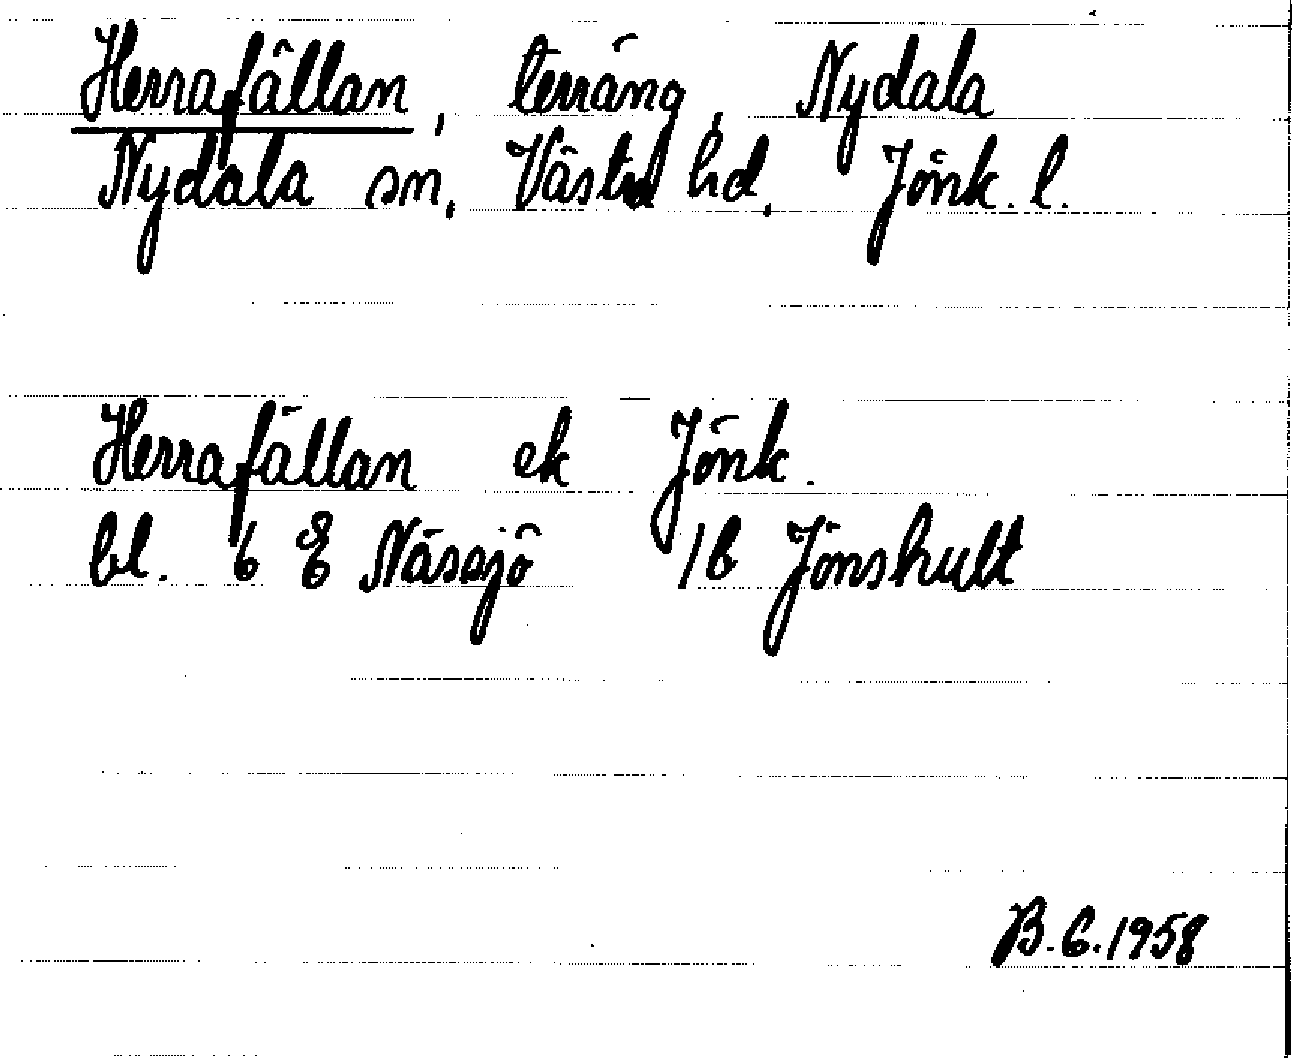 Herrafällan, terräng, Nydala
Nydala sn, Västra hd, Jönk. l.
Herrafällan ek Jönk.
bl. 6 E Nässjö 1b Jönshult
B.G.1958